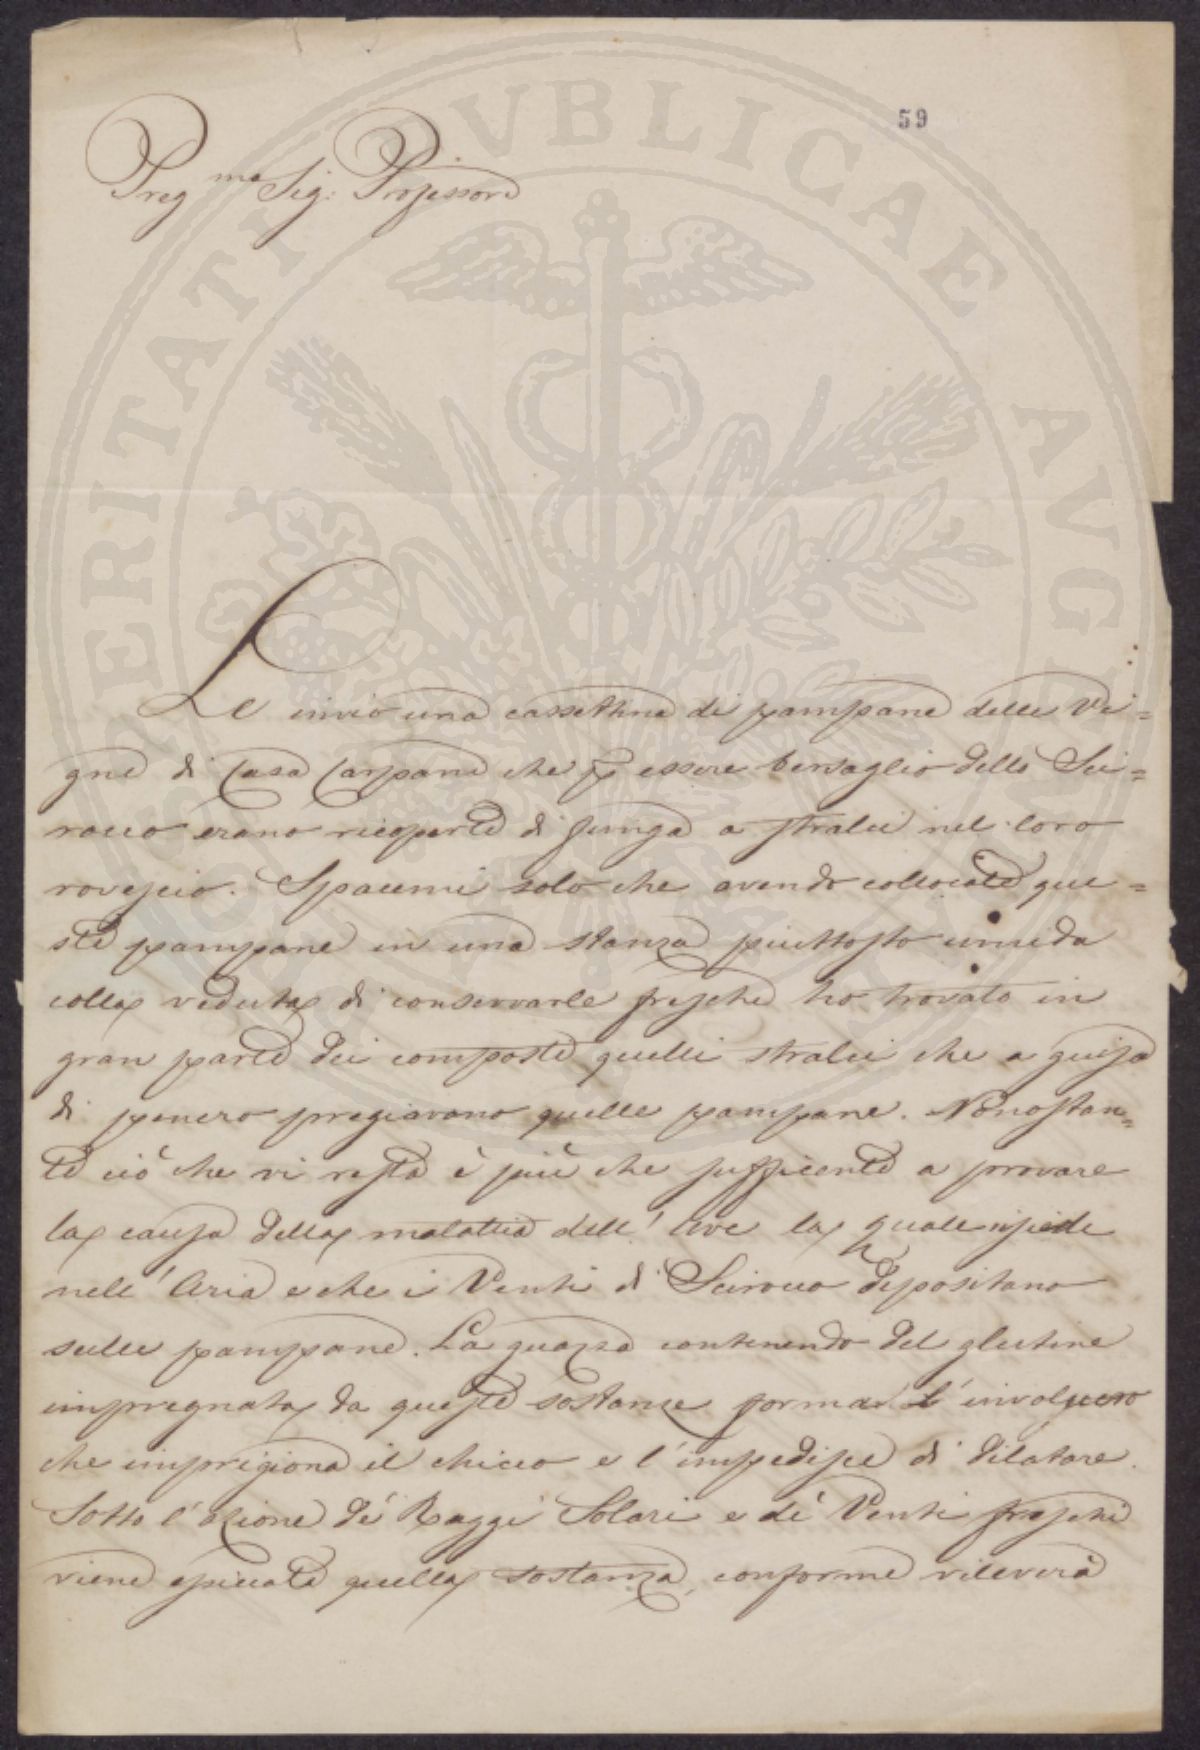 59
Preg.mo Sig: Professore
Le invio una cassettina di pampane delle Vi=
gne di Casa Carpane che p essere bersaglio dello Sci=
rocco erano ricoperte di funga a stralci nel loro
rovescio. Spiacemi solo che avendo collocate que=
ste pampane in una stanza piuttosto umida
colla veduta di conservarle fresche ho trovato in
gran parte dei composte quelli stralci che a guisa
di penero fregiavano quelle pampane. Nonostan=
te ciò che vi resta è più che sufficente a provare
la causa della malattia dell' Uve la quale risiede
nell' Aria e che i Venti di Scirocco depositano
sulle pampane. La guazza contenendo del glutine
impregnata da queste sostanze forma l'involucro
che imprigiona il chicco e l'impedisce di dilatare.
Sotto l'azione de' Raggi Solari e de' Venti freschi
viene essiccata quella sostanza, conforme rileverà
PROSPERITATI PVBLICAE AVGENDAE